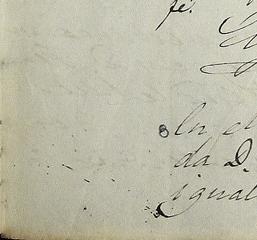 fe.
En el
da D.
igual